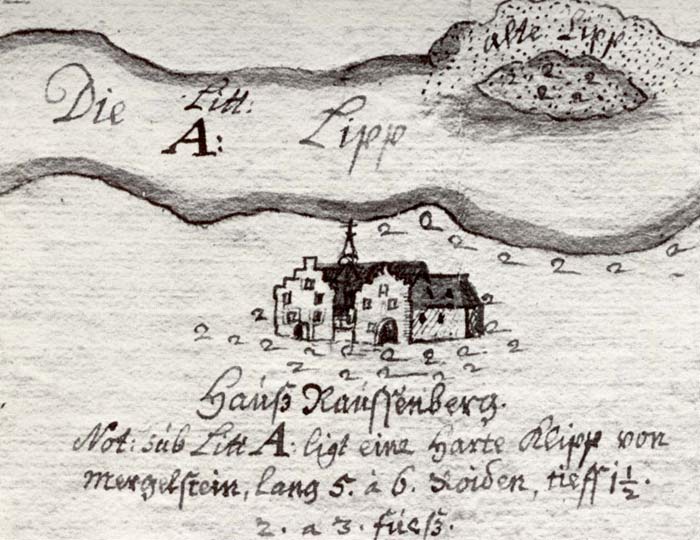 alte Lipp
Die Litt: Lipp
A:
Hauß Rauſſenberg.
Not: sub Litt A: ligt eine Harte Klipp von
Mergelstein, lang 5. à 6. Roiden, tieff 1½.
2. a 3. füeß.